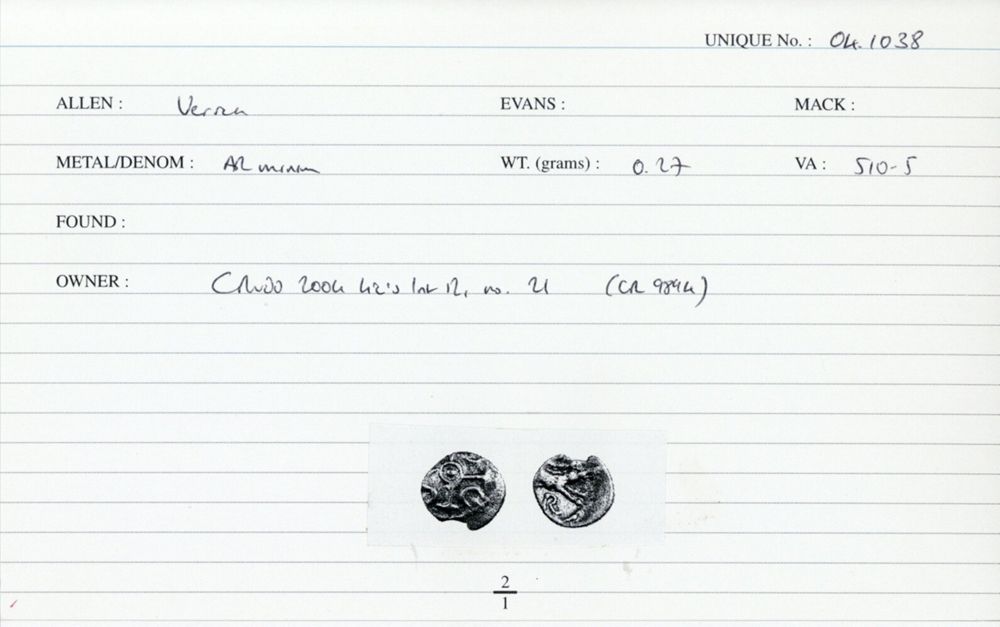 UNIQUE No. : 04.1038
ALLEN : Verica EVANS : MACK :
METAL/DENOM : AR minim WT. (grams) : 0.27 VA : 510-5
FOUND :
OWNER : 2004 no. 21 (CR 989h)
2
1